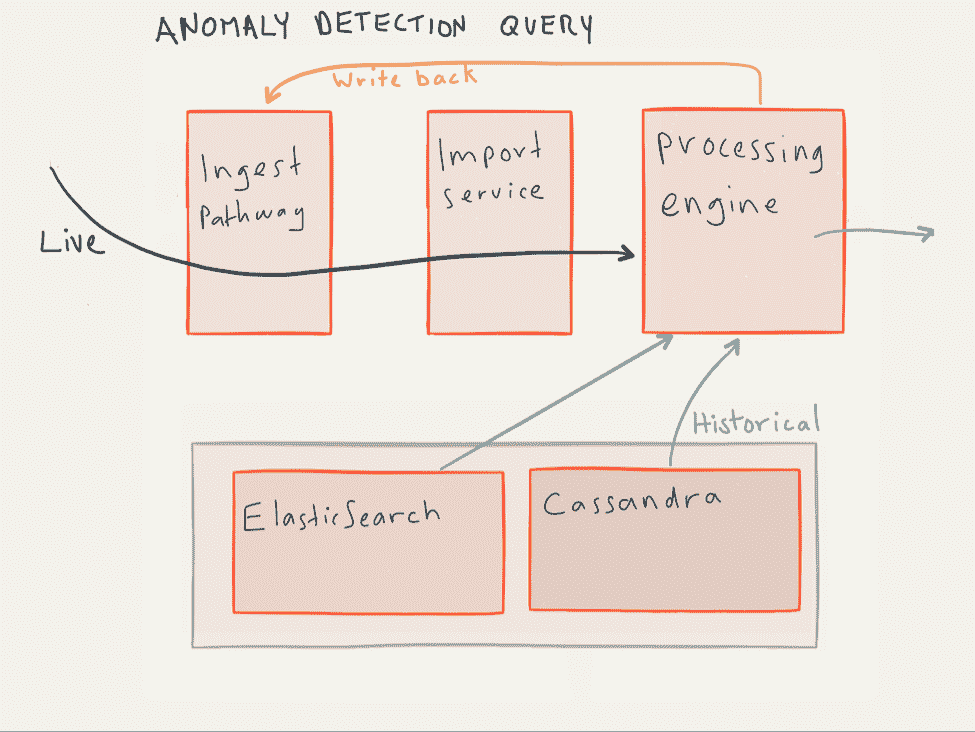 ANOMALY DETECTION QUERY
Write back
Ingest
Pathway
Import
service
processing
engine
Live
Historical
ElasticSearch
Cassandra